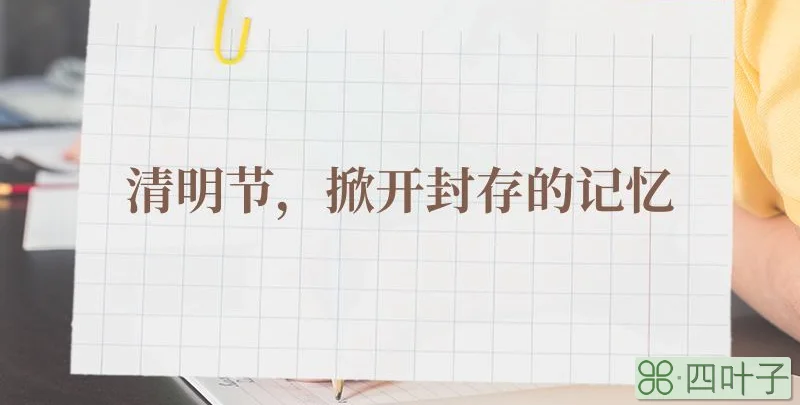 清明节，掀开封存的记忆
⌘·四叶子